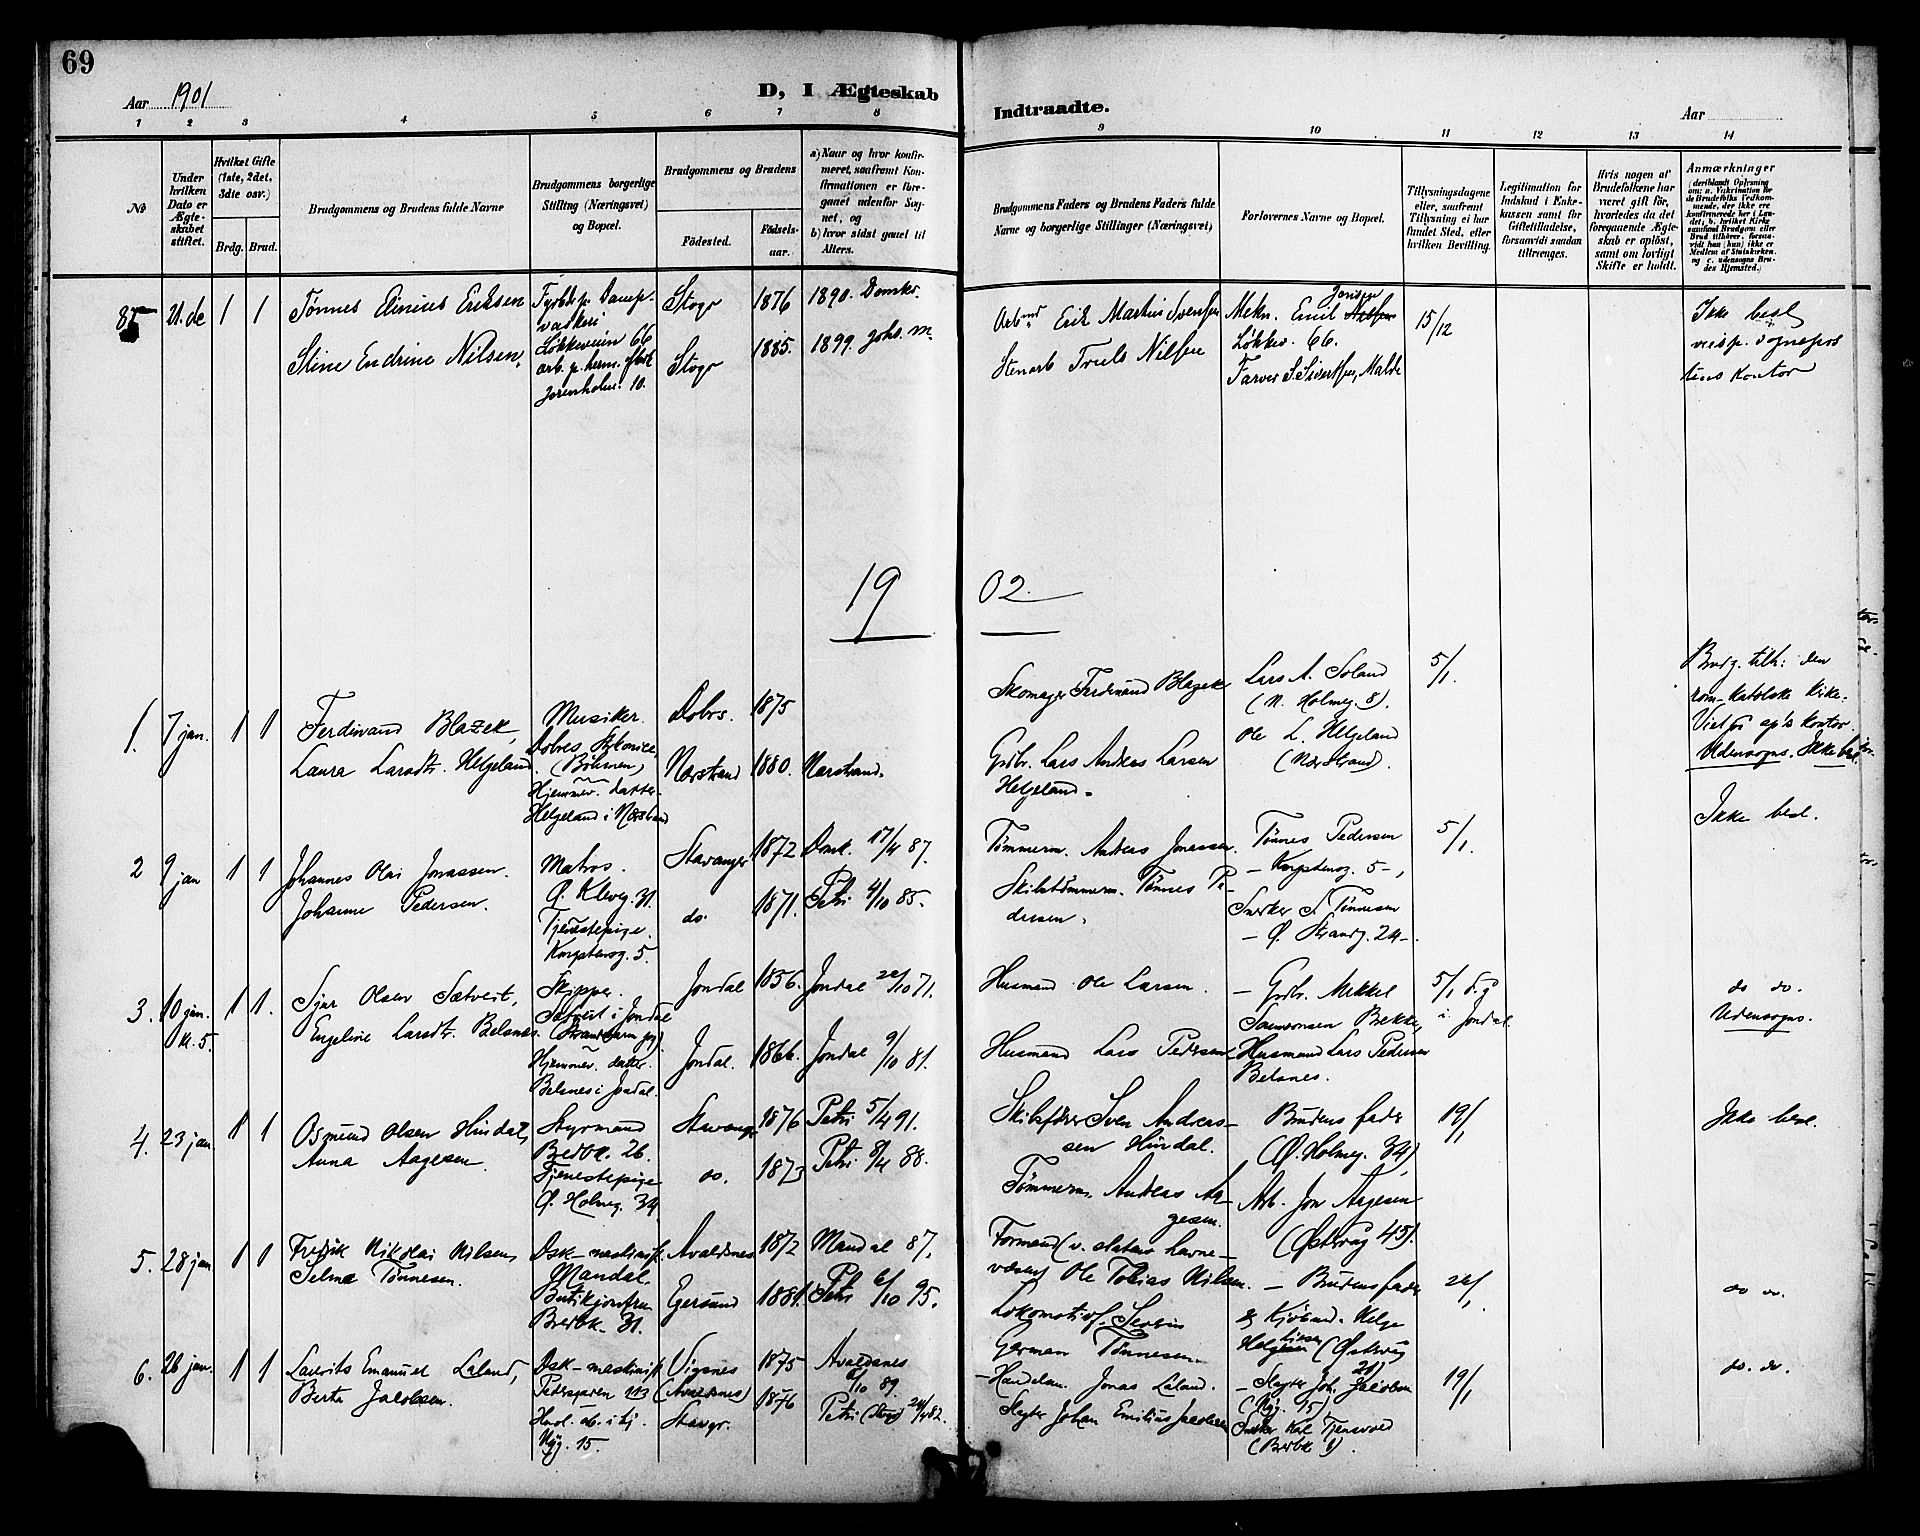 69
Aar 1901
D, I Ægteskab
Indtraadte.
Aar
1 2 3 4 5 6 7 8 9 10 11 12 13 14
No
Under hvilken Dato er Ægteskabet stiftet.
Hvilket Gifte (1ste, 2det, 3die osv.)
Brdg. Brud.
Brudgommens og Brudens fulde Navne
Brudgommens borgerlige Stilling (Næringsvei) og Bopæl.
Brudgommens og Brudens
Fødested.
Fødselsaar.
a) Naar og hvor konfirmeret, saafremt Konfirmationen er foregaaet udenfor Sognet, og
b) hvor sidst gaaet til Alters.
Brudgommens Faders og Brudens Faders fulde Navne og borgerlige Stillinger (Næringsvei)
Forlovernes Navne og Bopæl.
Tillysningsdagene eller, saafremt Tillysning ei har fundet Sted, efter hvilken Bevilling.
Legitimation for Indskud i Enkekassen samt for Giftetilladelse, forsaavidt saadan tiltrænges.
Hvis nogen af Brudefolkene har været gift før, hvorledes da det foregaaende Ægteskab er opløst, samt om lovligt Skifte er holdt.
Anmærkninger
(deriblandt Oplysning om: a. Vakcination for de Brudefolks Vedkommende, der ikke ere konfirmerede her i Landet, b. hvilket Kirkesamfund Brudgom eller Brud tilhører, forsaavidt han (hun) ikke er Medlem af Statskirken, og c. udensogns Brudes Hjemsted.)
85 21. de 1 1
Tønnes Eriksen
Stine Endrine Nilsen,
Fyrbøder p. Dampvaskeri
Løkkeveien 66
arb. p. herm. fabr
Jorenholm. 10.
Stvgr 1876 1890. Domkr.
Stvgr 1885. 1899. Johs. m.
Arbmd Erik Martin Svensen
Stenarb Truls Nilsen
Mekn. Emil Jensen
Løkkev. 66.
Farver S. Sivertsen, Malde
15/12
Ikke besl
visp. sognepres
tens kontor
19 02.
1. 7 jan. 1 1
Ferdinand Blazek,
Laura Larsdtr. Helgeland.
Musiker.
Dobrs
(Bøhmen)
Hjemmev. datter
Helgeland i Nærstrand
Dobrs. 1875
Nærstrand 1880. Nærstrand.
Skomager Ferdinand Blazek
Grdbr. Lars Andreas Larsen
Helgeland.
Lars A. Soland
(N. Holmeg. 8).
Ole L. Helgeland
(Nærstrand).
5/1.
Brudg. tilh: den
rom-katolske kirke.
Viet på sp's kontor
Udensogns. Ikke besl.
2 9 jan 1 1
Johannes Olai Jonassen.
Johanne Pedersen.
Matros.
Ø. Kleivg. 31.
Tjenestepige.
Korpstensg. 5.
Stavanger 1872 Domk. 17/4 87.
do. 1871. Petri 4/10 85.
Tømmerm. Andreas Jonassen
Skibstømmerm. Tønnes Pedersen.
Tønnes Pedersen
— Korpstensg. 5 —,
Snerker S. Tønnesen
— Ø. Strandg. 24 —.
5/1.
Ikke besl.
3. 10 jan. kl. 5. 1 1.
Sjur Olsen Sætveit,
Engeline Larsdtr. Belsnes.
Skipper.
Sætveit i Jondal
(Strandebarm pg).
Hjemmev. datter.
Belsnes i Jondal.
Jondal 1856. Jondal 22/10 71.
Jondal. 1866. Jondal 9/10 81.
Husmand Ole Larsen.
Husmand Lars Pedersen
— Grdbr. Mikkel
Samsonsen Bekke,
Husmand Lars Pedersen
Belsnes.
5/1 d.g
i Jondal
do do.
Udensogns.
4. 23 jan 1 1
Osmund Olsen Hindal,
Anna Aagesen.
Styrmand
Bredbk. 26.
Tjenestepige
Ø. Holmeg. 34.
Stavanger 1876 Petri 5/4 91.
do. 1873 Petri 8/4 88.
Skibsfører Sven Andreassen Hindal.
Tømmerm. Andreas Aagesen.
Brudens fader
(Ø. Holmeg. 34),
Arb. Jon Aagesen
(Østervåg 45).
19/1
Ikke besl.
5. 28 jan 1 1
Fredrik Nikolai Nilsen,
Selma Tønnesen.
Dsk-maskinist.
Mandal.
Butikjomfru
Bredbk. 31.
Avaldsnes 1872 Mandal 87.
Egersund 1881. Petri 6/10 95.
Formand (v. statens havnevæsen) Ole Tobias Nilsen.
Lokomotivf.
German Tønnesen.
— Brudens fader
& Kjøbmd. Helge
Helgesen (Østervåg
21)
26/1
do do.
6. 26 jan. 1 1
Laurits Emanuel Laland,
Berta Jacobsen.
Dsk-maskinist
Pedersgaden 113
Nyg. 15.
Vigsnes (Avaldsnes) 1875 Avaldsnes 6/10 89.
Stavgr. 1876 Petri
— Handelsm. Jonas Laland.
Slagter Johan Emilius Jacobsen
— Slagter Joh. Jacobsen
(Nyg. 15)
Snedker Karl Tjensvold
(Bredbk 1).
19/1
do. do.